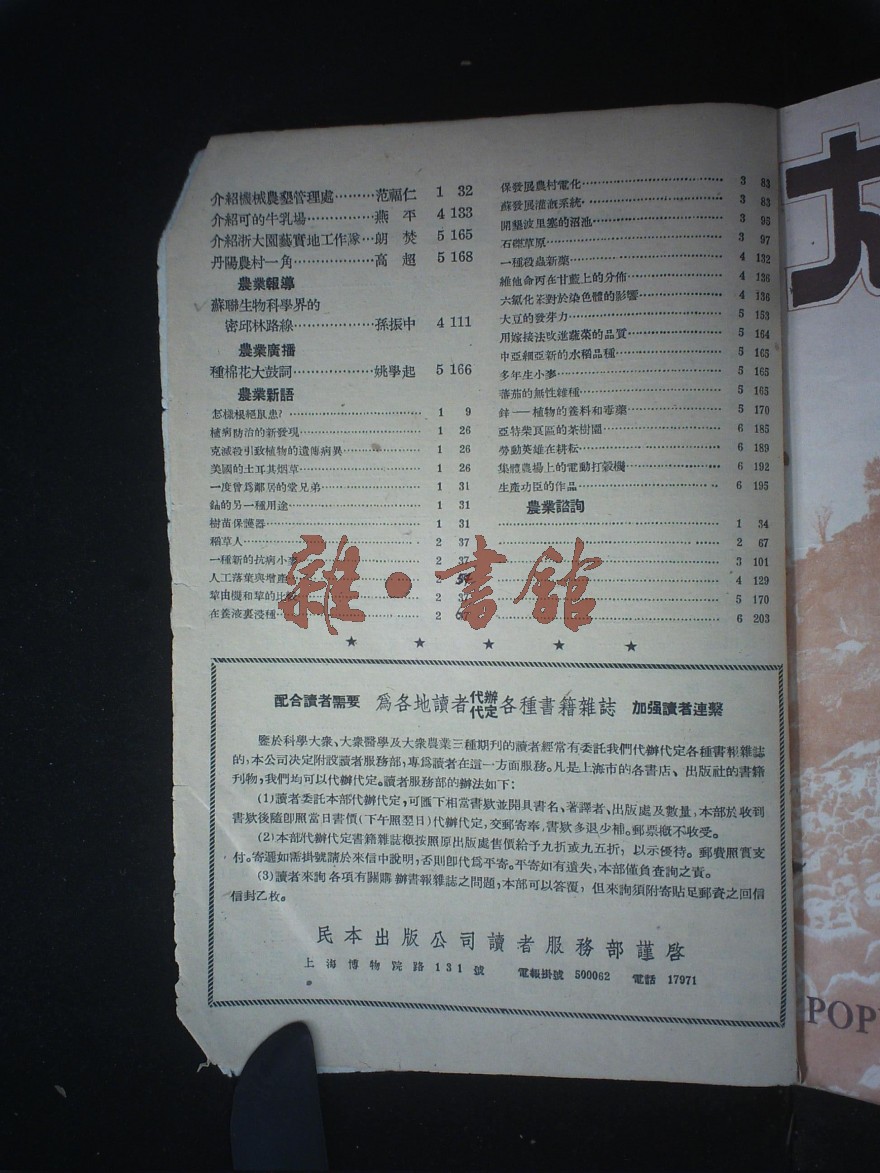 介紹機械農墾管理處………范福仁 1 32
介紹可的牛乳場……………燕 平 4 133
介紹浙大園藝實地工作隊…胡 焚 5 165
丹陽農村一角………………高 超 5 168
農業報導
蘇聯生物科學界的
密邱林路線…………………孫振中 4 111
農業廣播
種棉花大鼓詞………………姚學起 5 166
農業新語
怎樣根絕鼠患?……………… 1 9
植病防治的新發現……………… 1 26
克滅殺引致植物的遺傳病異……… 1 26
美國的土耳其烟草……………… 1 26
一度曾爲鄰居的堂兄弟………… 1 31
鈾的另一種用途……………… 1 31
樹苗保護器……………… 1 31
稻草人……………… 2 37
一種新的抗病小麥 2 37
人工落葉與增產 2
犂由機和犂的比較 2
在養液裏浸種……………… 2
保發展農村電化……………… 3 83
蘇發展灌溉系統……………… 3 83
開墾波里塞的沼池……………… 3 95
石礫草原……………… 3 97
一種殺蟲新藥……………… 4 132
維他命丙在甘藍上的分佈……… 4 136
六氯化苯對於染色體的影響…… 4 136
大豆的發芽力……………… 5 153
用嫁接法改進蔬菜的品質……… 5 164
中亞細亞新的水稻品種………… 5 165
多年生小麥……………… 5 165
蕃茄的無性雜種……………… 5 165
鋅——植物的養料和毒藥……… 5 170
亞特柴瓦區的茶樹園………… 6 185
勞動英雄在耕耘……………… 6 189
集體農場上的電動打穀機……… 6 192
生產功臣的作品……………… 6 195
農業諮詢
……………… 1 34
……………… 2 67
……………… 3 101
……………… 4 129
……………… 5 170
……………… 6 203
雜·書館
★ ★ ★ ★ ★
配合讀者需要 爲各地讀者代辦代定各種書籍雜誌 加强讀者連繫
鑒於科學大衆、大衆醫學及大衆農業三種期刊的讀者經常有委託我們代辦代定各種書報雜誌
的,本公司決定附設讀者服務部,專爲讀者在這一方面服務。凡是上海市的各書店、出版社的書籍
刊物,我們均可以代辦代定。讀者服務部的辦法如下:
(1)讀者委託本部代辦代定,可匯下相當書欵並開具書名、著譯者、出版處及數量,本部於收到
書欵後隨卽照當日書價(下午照翌日)代辦代定,交郵寄奉,書欵多退少補。郵票概不收受。
(2)本部代辦代定書籍雜誌概按照原出版處售價給予九折或九五折,以示優待。郵費照實支
付。寄遞如需掛號請於來信中說明,否則卽代爲平寄。平寄如有遺失,本部僅負查詢之責。
(3)讀者來詢各項有關購辦書報雜誌之問題,本部可以答覆,但來詢須附寄貼足郵資之回信
信封乙枚。
民本出版公司讀者服務部謹啓
上海博物院路131號 電報掛號 500062 電話 17971
POP